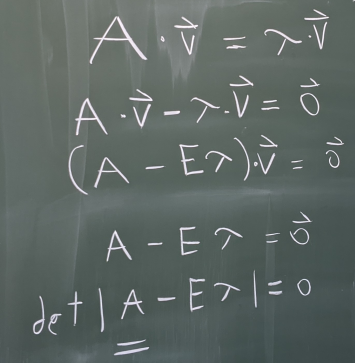 A · v⃗ = λ · v⃗
A · v⃗ − λ · v⃗ = 0⃗
(A − Eλ) · v⃗ = 0⃗
A − Eλ = 0⃗
det | A − Eλ | = 0